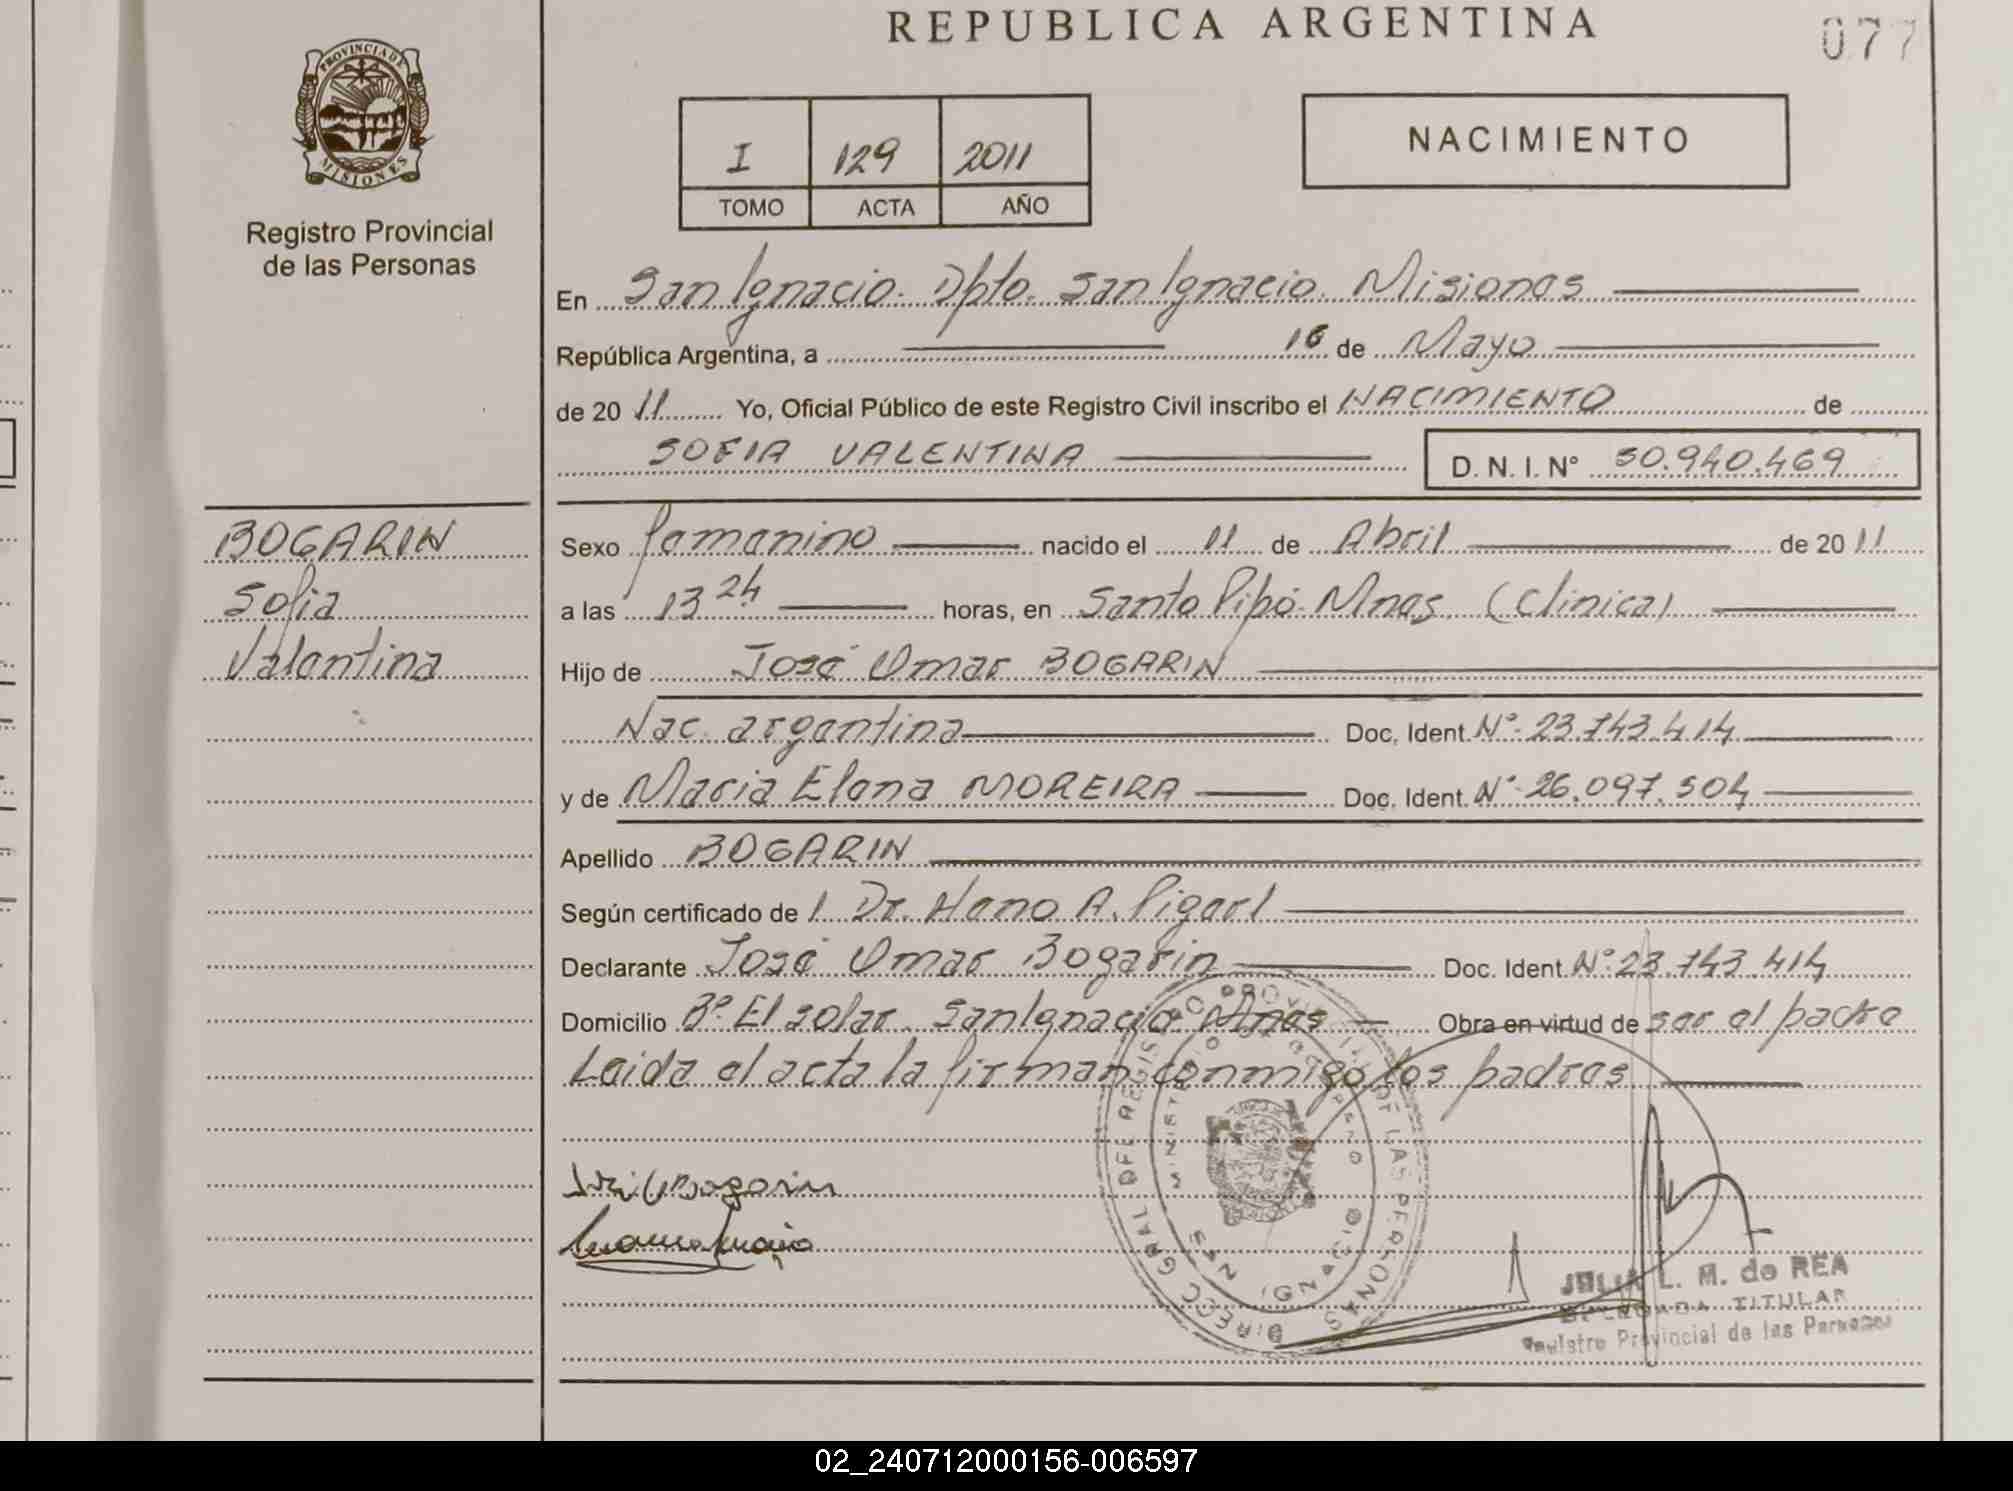 REPUBLICA ARGENTINA
077
PROVINCIA DE
MISIONES
Registro Provincial
de las Personas
I 129 2011
TOMO ACTA AÑO
NACIMIENTO
En San Ignacio. Dpto. San Ignacio. Misiones
República Argentina, a 16 de Mayo
de 20 11 Yo, Oficial Público de este Registro Civil inscribo el NACIMIENTO de
SOFIA VALENTINA D. N. I. N° 50.940.469
BOGARIN
Sofia
Valentina
Sexo femenino nacido el 11 de Abril de 20 11
a las 13 24 horas, en Santo Pipó. Mnes. (Clinica)
Hijo de José Omar BOGARIN
Nac. argentina Doc. Ident. N°. 23.743.414
y de Maria Elena MOREIRA Doc. Ident. N°. 26.097.504
Apellido BOGARIN
Según certificado de Dr. Hano A.
Declarante José Omar Bogarin Doc. Ident. N°. 23.743.414
Domicilio B° El solar. San Ignacio Mnes Obra en virtud de ser el padre
Leida el acta la firman conmigo los padres
DIRECC GRAL DE REGISTRO PROVINCIAL DE LAS PERSONAS
MINISTERIO DE GOBIERNO
SAN IGNACIO
L. M. de REA
DELEGADA TITULAR
Registro Provincial de las Personas
02_240712000156-006597